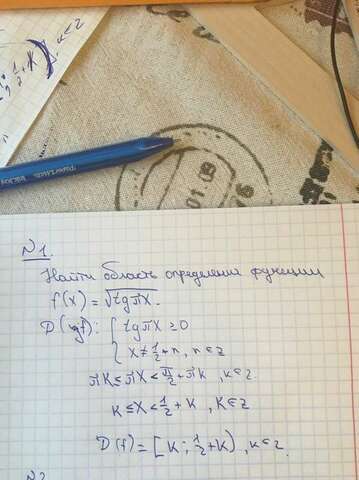 ; 1/2 + K), K∈Z
PaperMate InkJoy
01.09
N1.
Найти область определения функции
f(x) = √tgπx.
D(f): { tgπx ≥ 0
x ≠ 1/2 + n, n∈Z
πK ≤ πx < π/2 + πK, K∈Z
K ≤ x < 1/2 + K, K∈Z
D(f) = [K; 1/2 + K), K∈Z.